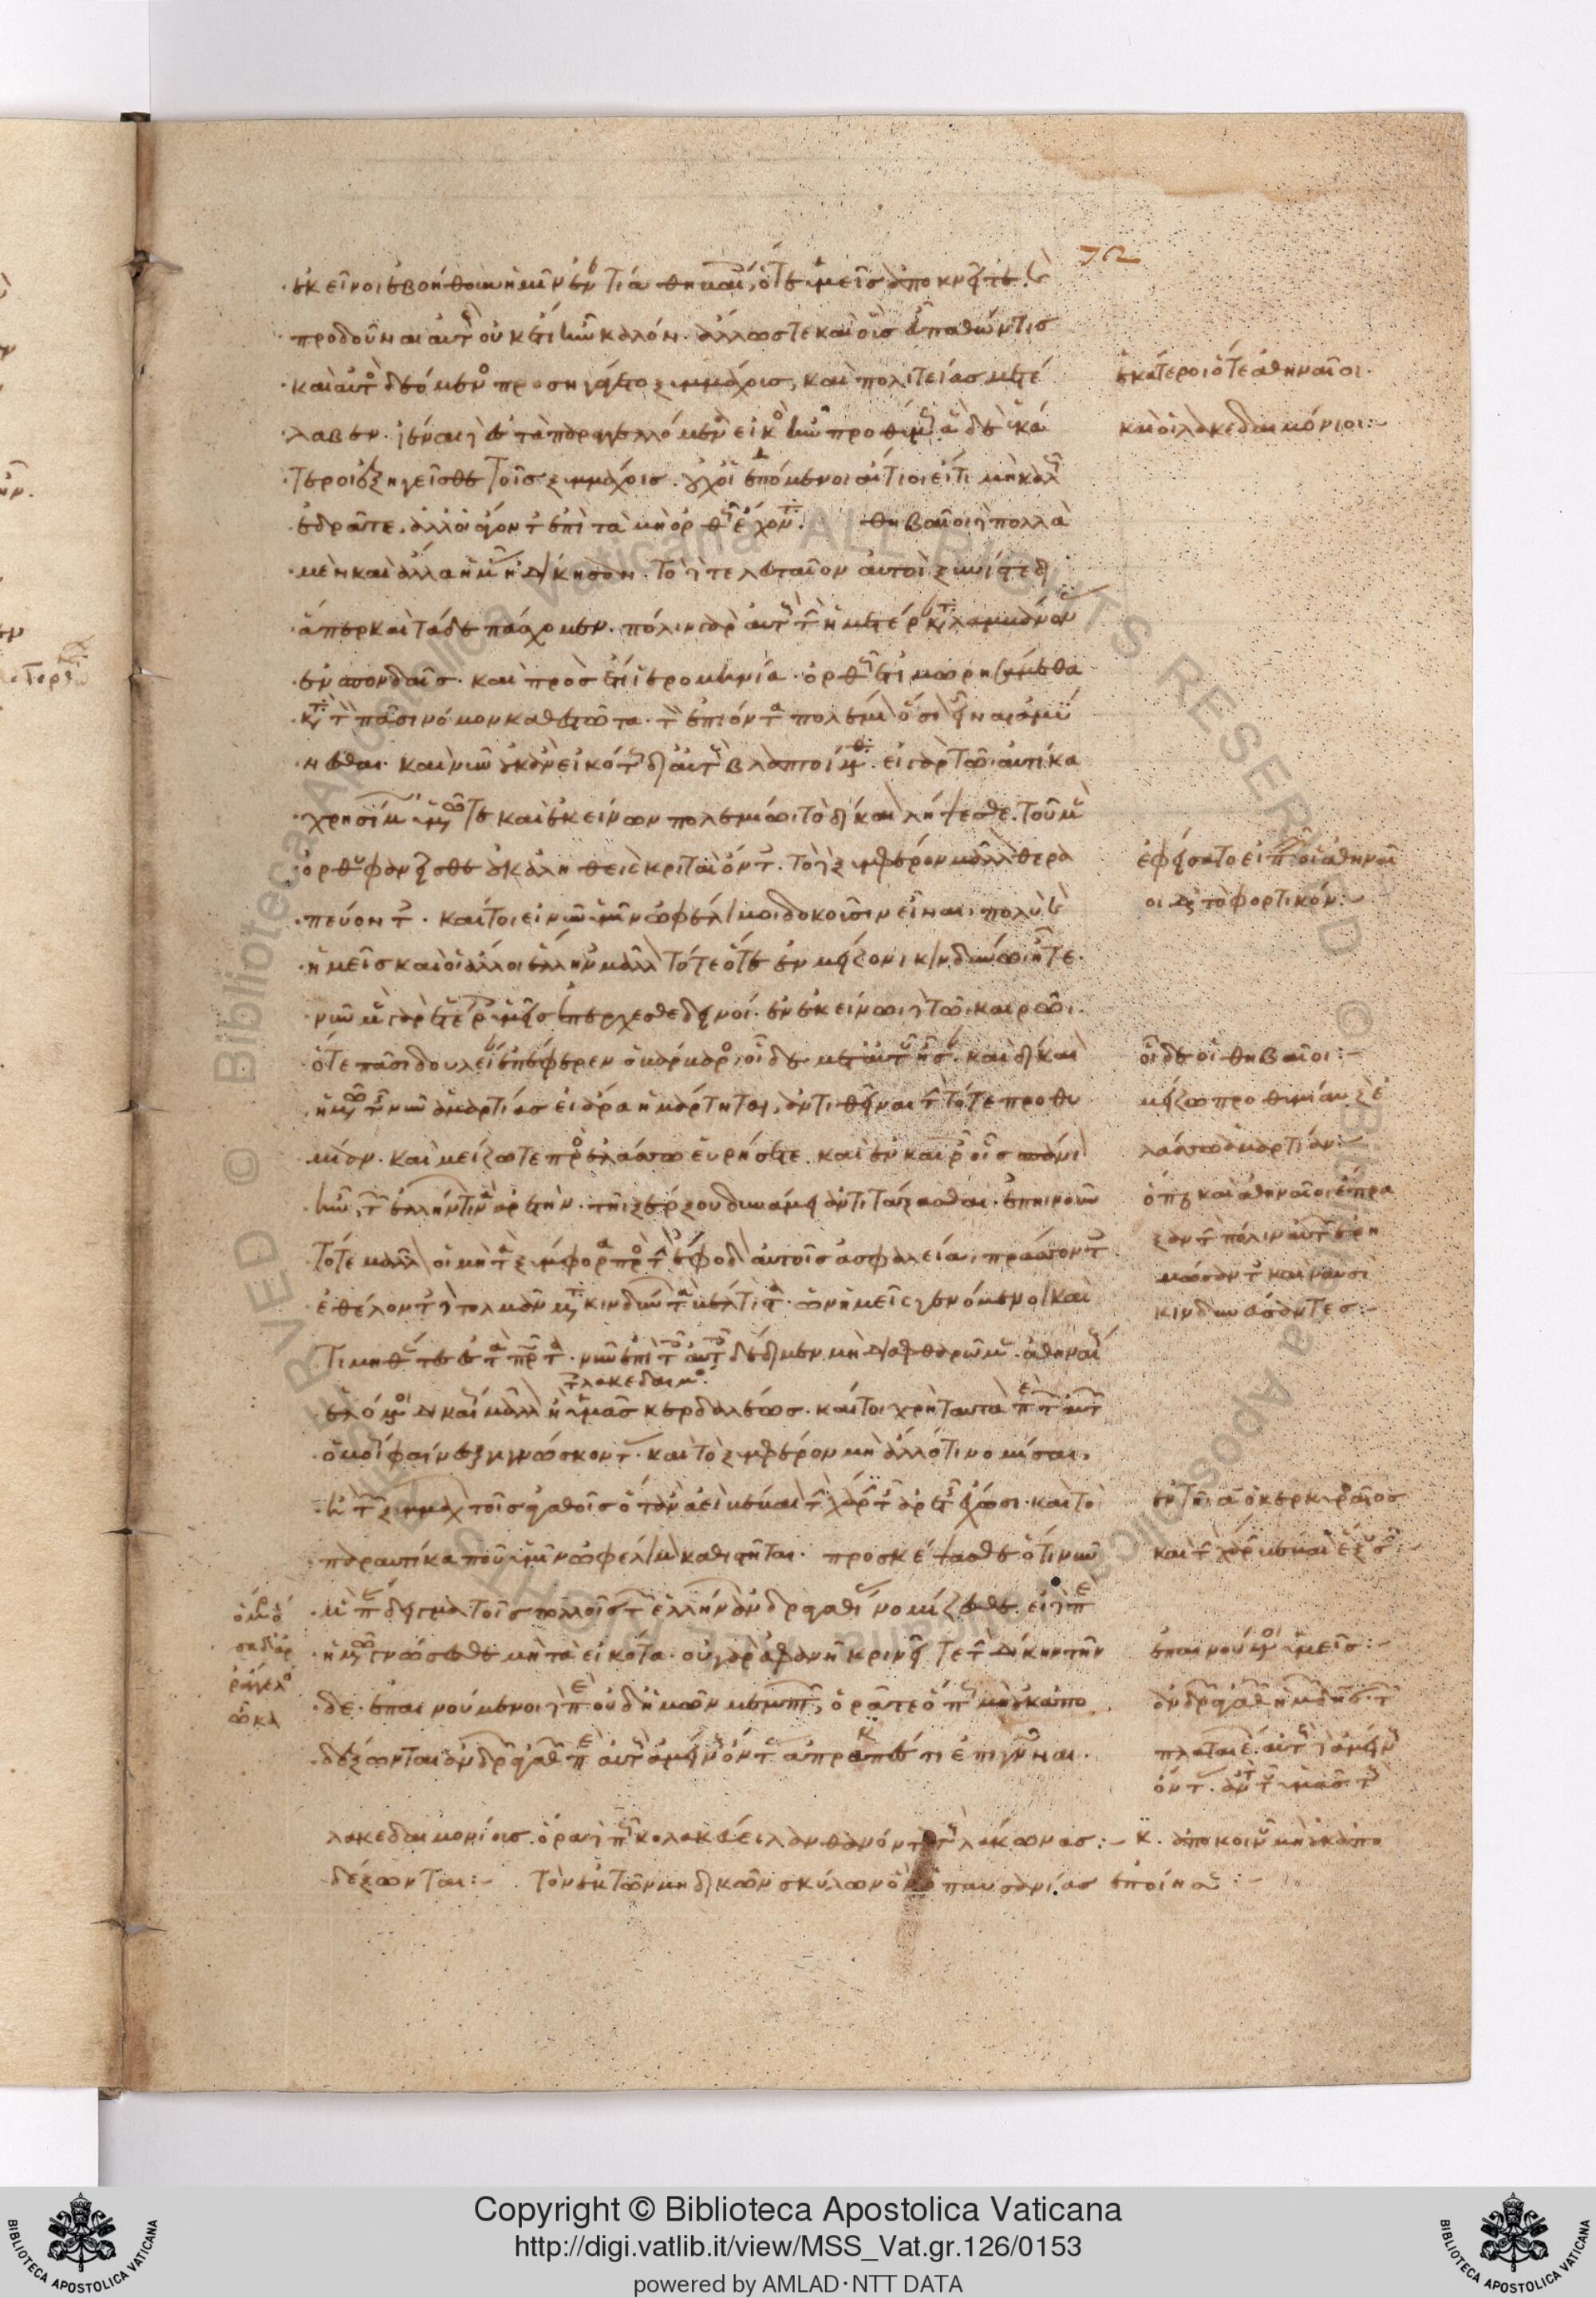 72
ἐκεῖνοι ἐβοήθουν ἡμῖν ἐναντία θηβαίοις, ὅτε ὑμεῖς ἀποκνεῖτε. καὶ
προδοῦναι αὐτοὺς οὐκέτι ἦν καλόν. ἄλλως τε καὶ οὓς εὖ παθών τις
καὶ αὐτὸς δεόμενος προσηγάγετο ξυμμάχους, καὶ πολιτείας μετέ
λαβεν. ἰέναι δὲ ἐς τὰ παραγγελλόμενα εἰκὸς ἦν προθύμως ἃ δὲ ἑκά
τεροι ἐξηγεῖσθε τοῖς ξυμμάχοις. οὐχ οἱ ἑπόμενοι αἴτιοι εἴ τι μὴ καλῶς
ἐδρᾶτε. ἀλλ οἱ ἄγοντες ἐπὶ τὰ μὴ ὀρθῶς ἔχοντα. θηβαῖοι δὲ πολλὰ
μὲν καὶ ἄλλα ἡμᾶς ἠδίκησαν. τὸ δὲ τελευταῖον αὐτοὶ ξύνιστε δι
ἅπερ καὶ τάδε πάσχομεν. πόλιν γὰρ αὐτοὺς τὴν ἡμετέραν καταλαμβάνοντας
ἐν σπονδαῖς. καὶ προσέτι ἱερομηνία. ὀρθῶς ἐτιμωρησάμεθα
κατὰ τὸν πᾶσι νόμον καθεστῶτα. τὸν ἐπιόντα πολέμιον ὅσιον εἶναι ἀμύ
νεσθαι. καὶ νῦν οὐκ ἂν εἰκότως δι αὐτοὺς βλαπτοίμεθα. εἰ γὰρ τῶι αὐτίκα
χρησίμω ὑμῶν τε καὶ ἐκείνων πολεμίωι τὸ δίκαιον λήψεσθε. τοῦ μὲν
ὀρθοῦ φανεῖσθε οὐκ ἀληθεῖς κριταὶ ὄντες. τὸ δὲ ξυμφέρον μᾶλλον θερα
πεύοντες. καίτοι εἰ νῦν ὑμῖν ὠφέλιμοι δοκοῦσιν εἶναι, πολὺ καὶ
ἡμεῖς καὶ οἱ ἄλλοι ἕλληνες μᾶλλον τότε ὅτε ἐν μείζονι κινδύνωι ἦτε.
νῦν μὲν γὰρ ἑτέροις ὑμεῖς ἐπέρχεσθε δεινοί. ἐν ἐκείνωι δὲ τῶι καιρῶι.
ὅτε πᾶσι δουλείαν ἐπέφερεν ὁ βάρβαρος, οἵδε μετ αὐτοῦ ἦσαν. καὶ δίκαιον
ἡμῶν τῆς νῦν ἁμαρτίας εἰ ἄρα ἡμάρτηται, ἀντιθεῖναι τὴν τότε προθυ
μίαν. καὶ μείζω τε πρὸς ἐλάσσω εὑρήσετε. καὶ ἐν καιροῖς οἷς σπάνιον
ἦν, τῶν ἑλλήνων τινὰ ἀρετὴν. τῆι ξέρξου δυνάμει ἀντιτάξασθαι. ἐπηινοῦν
τό τε μᾶλλον οἱ μὴ τὰ ξύμφορα πρὸς τὴν ἔφοδον αὐτοῖς ἀσφαλεία, πράσσοντες.
ἐθέλοντες δὲ τολμᾶν μετὰ κινδύνων τὰ βέλτιστα. ὧν ἡμεῖς γενόμενοι καὶ
τιμηθέντες ἐς τὰ πρῶτα. νῦν ἐπὶ τοῖς αὐτοῖς δέδιμεν μὴ διαφθαρῶμεν. ἀθηναίους
ἑλόμενοι δικαίως μᾶλλον ἢ ὑμᾶς κερδαλέως. καίτοι χρὴ ταυτὰ περὶ τῶν αὐτῶν
ὁμοίως φαίνεσθαι γιγνώσκοντας. καὶ τὸ ξυμφέρον μὴ ἄλλό τι νομίσαι,
ἢ τῶν ξυμμάχων τοῖς ἀγαθοῖς ὅταν ἀεὶ βέβαιον τὴν χάριν τῆς ἀρετῆς ἔχωσι. καὶ τὸ
παραυτίκα ποῦ ὑμῖν ὠφέλιμον καθιστῆται. προσκέψασθε ὅτι νῦν
μὲν παράδειγμα τοῖς πολλοῖς τῶν ἑλλήνων ἀνδραγαθίας νομίζεσθε. εἰ δὲ περὶ
ἡμῶν γνώσεσθε μὴ τὰ εἰκότα. οὐ γὰρ ἀφανῆ κρινεῖτε τὴν δίκην τήν
δε. ἐπαινούμενοι δὲ περὶ οὐδ ἡμῶν μεμπτῶν, ὁρᾶτε ὅπως μὴ οὐκ ἀπο
δέξωνται ἀνδρῶν ἀγαθῶν περὶ αὐτοὺς ἀμείνους ὄντας ἀπρεπές τι ἐπιγνῶναι.
λακεδαιμονίοις. ὅρα δὲ πῶς κολακεύει λανθανόντως τοὺς λάκωνας:- κ. ἀπὸ κοινοῦ μὴ οὐκ ἀπο
δέξωνται:- τῶν ἐκ τῶν μηδικῶν σκύλων ὧν ὁ παυσανίας ἐποίησεν:-
ἑκάτεροι ὅ τε ἀθηναῖοι.
καὶ οἱ λακεδαιμόνιοι:-
οἵδε οἱ θηβαῖοι:-
μείζω προθυμίαν πρὸς ἐ
λάσσω ἁμαρτίαν:-
κινδυνεύσαντες:-
ἐπαινούμενοι ὑμεῖς:-
Copyright © Biblioteca Apostolica Vaticana
http://digi.vatlib.it/view/MSS_Vat.gr.126/0153
powered by AMLAD·NTT DATA
BIBLIOTECA APOSTOLICA VATICANA
BIBLIOTECA APOSTOLICA VATICANA